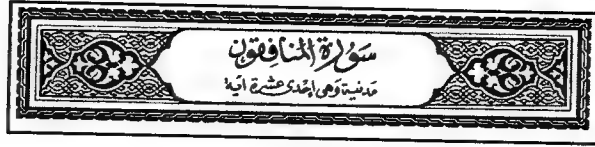 سورة المنافقون
مدنية وهى إحدى عشرة آية